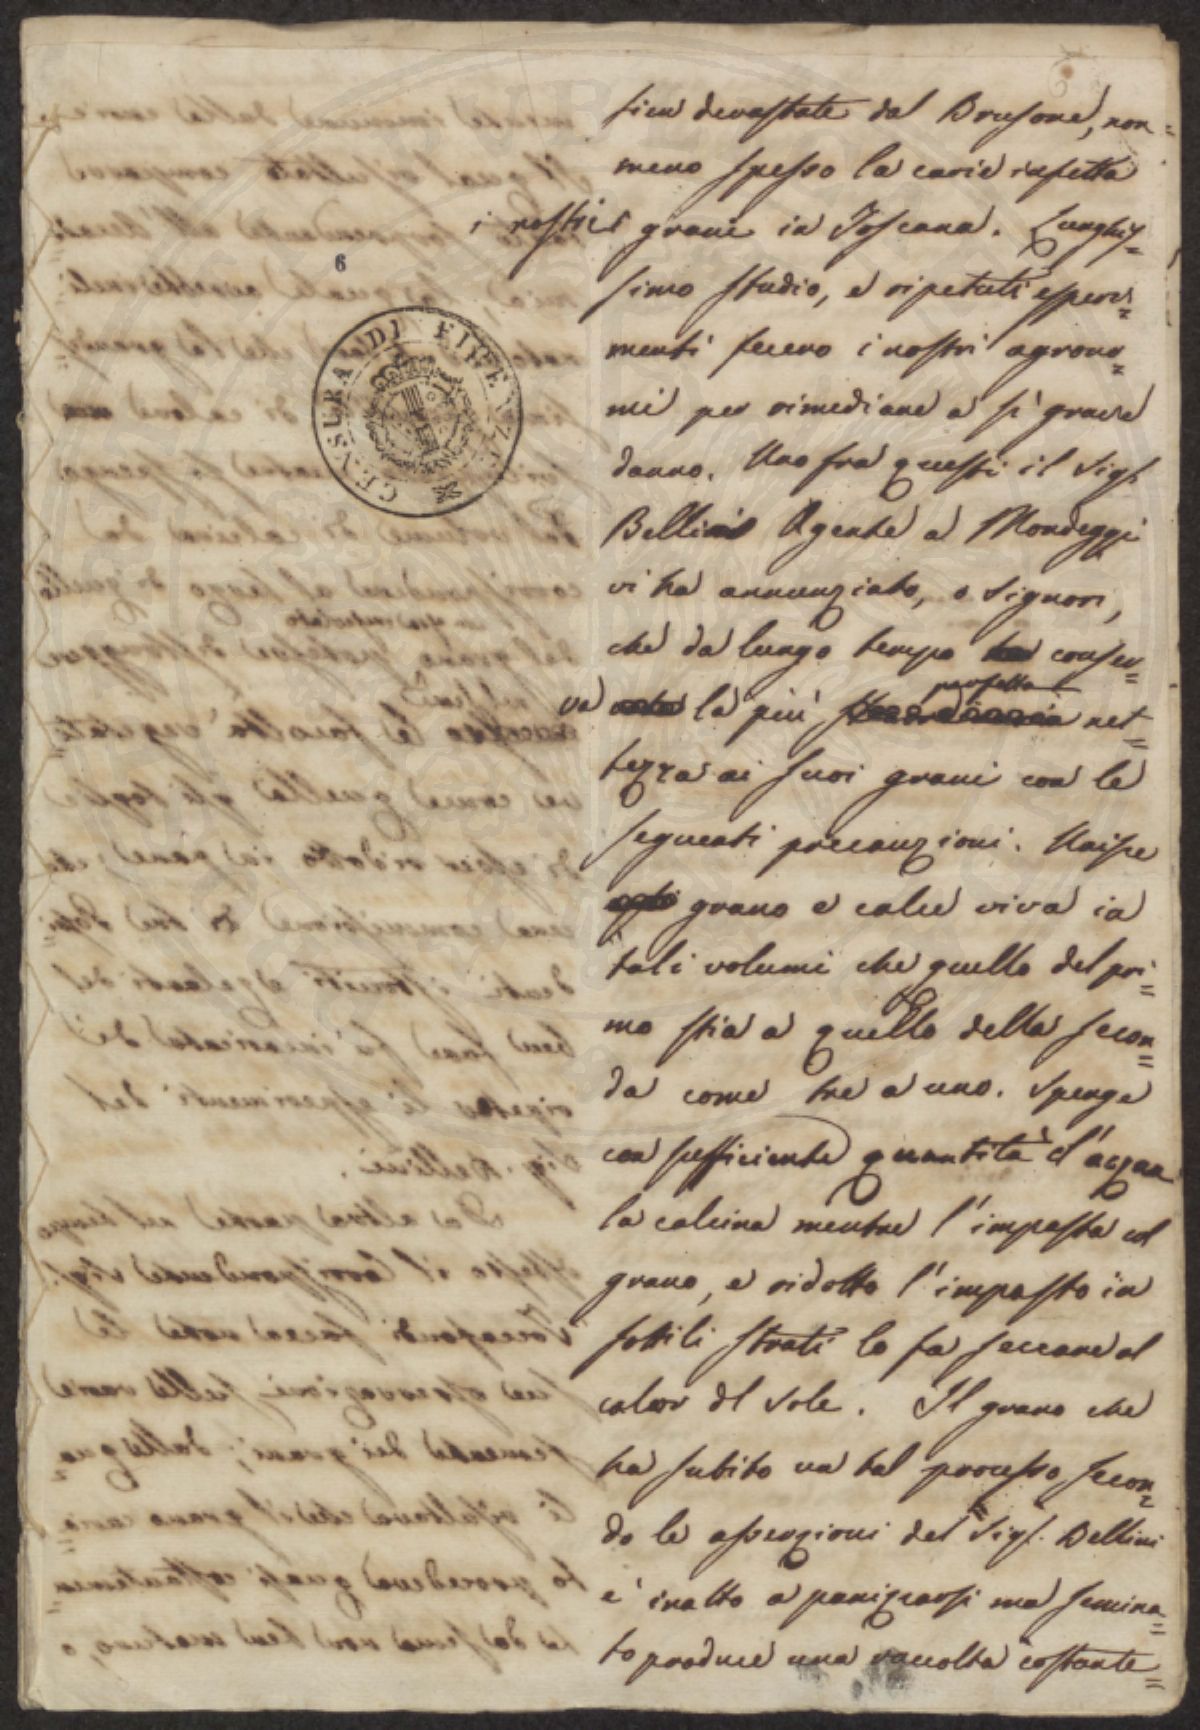 sien devastate dal Brusone, non=
meno spesso la carie infetta
i nostri grani in Toscana. Lunghis=
6
simo studio, e ripetuti esperi=
CENSURA DI FIRENZE
menti fecero i nostri agrono=
mi per rimediare a sì grave
danno. Uno fra questi il Sigr.
Bellini Agente a Mondeggi
vi ha annunziato, o Signori,
che da lungo tempo conser=
perfetta
va la più net=
tezza ai suoi grani con le
seguenti precauzioni. Unisce
grano e calce viva in
tali volumi che quello del pri=
mo stia a quello della secon=
da come tre a uno. Spenge
con sufficiente quantità d'acqua
la calcina mentre l'impasta col
grano, e ridotto l'impasto in
sottili strati lo fa seccare al
calor del sole. Il grano che
ha subito un tal processo, secon=
do le asserzioni del Sigr. Bellini
e' inatto a panizzarsi ma semina=
to produce una raccolta costante=